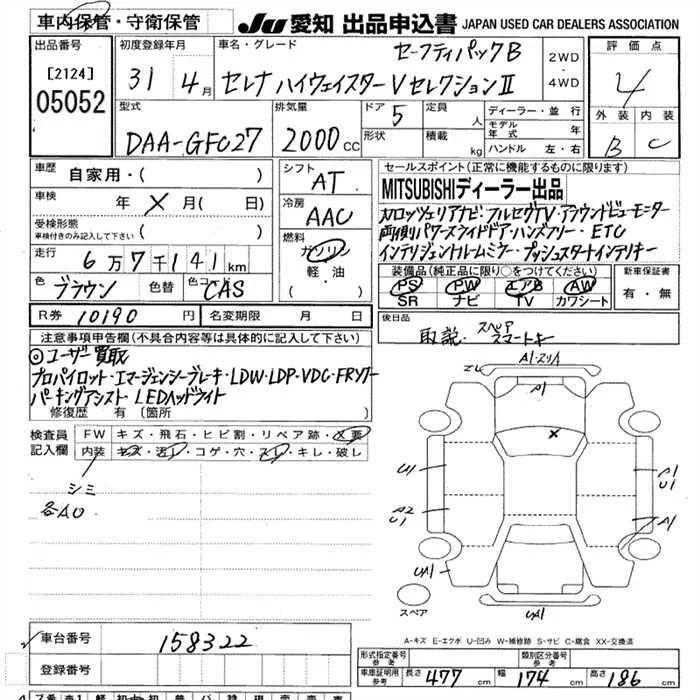 車内保管・守衛保管
JU 愛知 出品申込書 JAPAN USED CAR DEALERS ASSOCIATION
出品番号 初度登録年月 車名・グレード セーフティパックB 2WD・4WD 評価点
[2124] 31年 4月 セレナ ハイウェイスターVセレクションⅡ 4
05052
型式 排気量 ドア 5 定員 人 ディーラー・並行 外装 内装
DAA-GFC27 2000CC 形状 積載 kg モデル年式 年 B C
ハンドル 左・右
車歴 自家用・( )
車検 年 X 月( 日)
受検形態 車検付きのみ記入して下さい ( )
走行 6万7千141km
色 ブラウン 色替 色コ CAS
R券 10190円 名変期限 月 日
シフト AT
冷房 AAC
燃料 ガソリン 軽・油 ( )
セールスポイント(正常に機能するものに限ります)
MITSUBISHIディーラー出品
カロッツェリアナビ・フルセグTV・アラウンドビューモニター
両側パワースライドドアハンズフリー・ETC
インテリジェントルームミラー・プッシュスタートインテリキー
装備品(純正品に限り○をつけてください) 新車保証書
PS PW エアB AW 有・無
SR ナビ TV カワシート
後日品
取説・スペア スマートキー
注意事項申告欄(不具合内容等は具体的に記入して下さい)
◎ユーザー買取
プロパイロット・エマージェンシーブレーキ・LDW・LDP・VDC・FRソナー
パーキングアシスト・LEDヘッドライト
修復歴 有〔箇所 〕
検査員記入欄 FW キズ・飛石・ヒビ割・リペア跡・X要
内装 キズ・汚レ・コゲ・穴・スレ・キレ・破レ
シミ
各AU
A1
X
U1
A1
U1
A2
U1
A1
UA1
UA1
スペア
A-キズ E-エクボ U-凹み W-補修跡 S-サビ C-腐食 XX-交換済
車台番号 158322
登録番号
形式指定番号 参考 類別区分番号 参考
車庫証明用 参考 長さ 477cm 幅 174cm 高さ 186cm